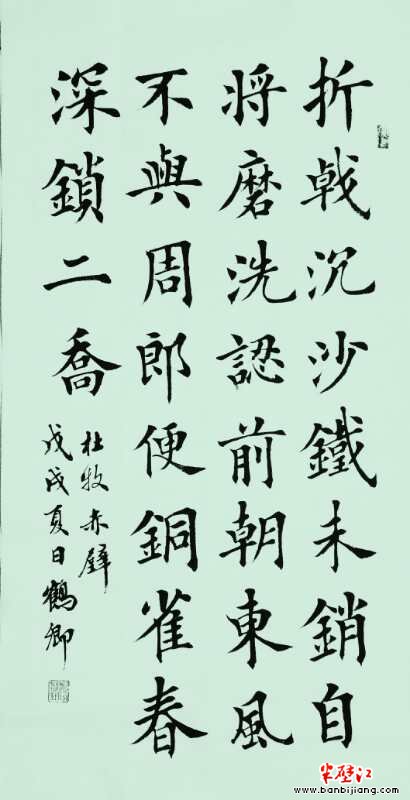 折戟沉沙鐵未銷自
将磨洗認前朝東風
不與周郎便銅雀春
深鎖二喬
杜牧赤壁
戊戌夏日鶴卿
半壁江
www.banbijiang.com